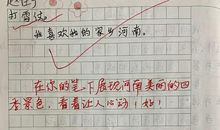 打雪仗。
我喜欢我的家乡河南。
在你的笔下展现河南美丽的四
季景色，看着让人心动！好！